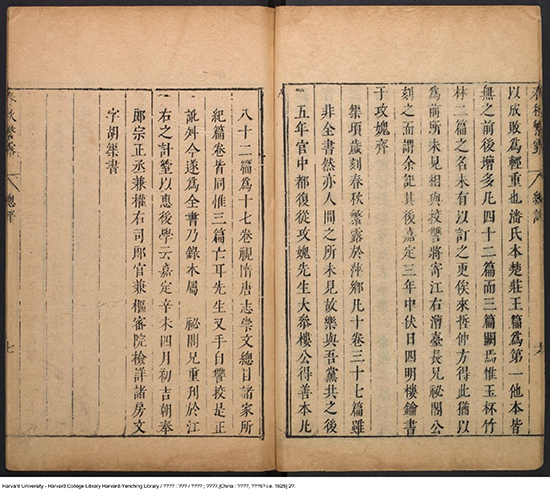 春秋繁露
總評
六
以成敗為輕重也潘氏本楚莊王篇為第一他本皆
無之前後增多凡四十二篇而三篇闕焉惟玉杯竹
林二篇之名未有以訂之更俟來哲仲方得此猶以
為前所未見相與校讐將寄江右漕臺長兄祕閣公
刻之而謂余記其後嘉定三年中伏日四明樓鑰書
于攻媿齋
榘頃歲刻春秋繁露於萍鄉凡十卷三十七篇雖
非全書然亦人間之所未見故樂與吾黨共之後
五年官中都復從攻媿先生大參樓公得善本凡
八十二篇為十七卷視隋唐志崇文總目諸家所
紀篇卷皆同惟三篇亡耳先生又手自讐校是正
訛舛今遂為全書乃錄本屬 祕閣兄重刊於江
右之計臺以惠後學云嘉定辛未四月初吉朝奉
郎宗正丞兼權右司郎官兼樞密院檢詳諸房文
字胡榘書
春秋繁露
總評
七
Harvard University - Harvard College Library Harvard-Yenching Library / ???? : ??? / ???? ; ???? [China : ????, ???5? i.e. 1625] 2?.